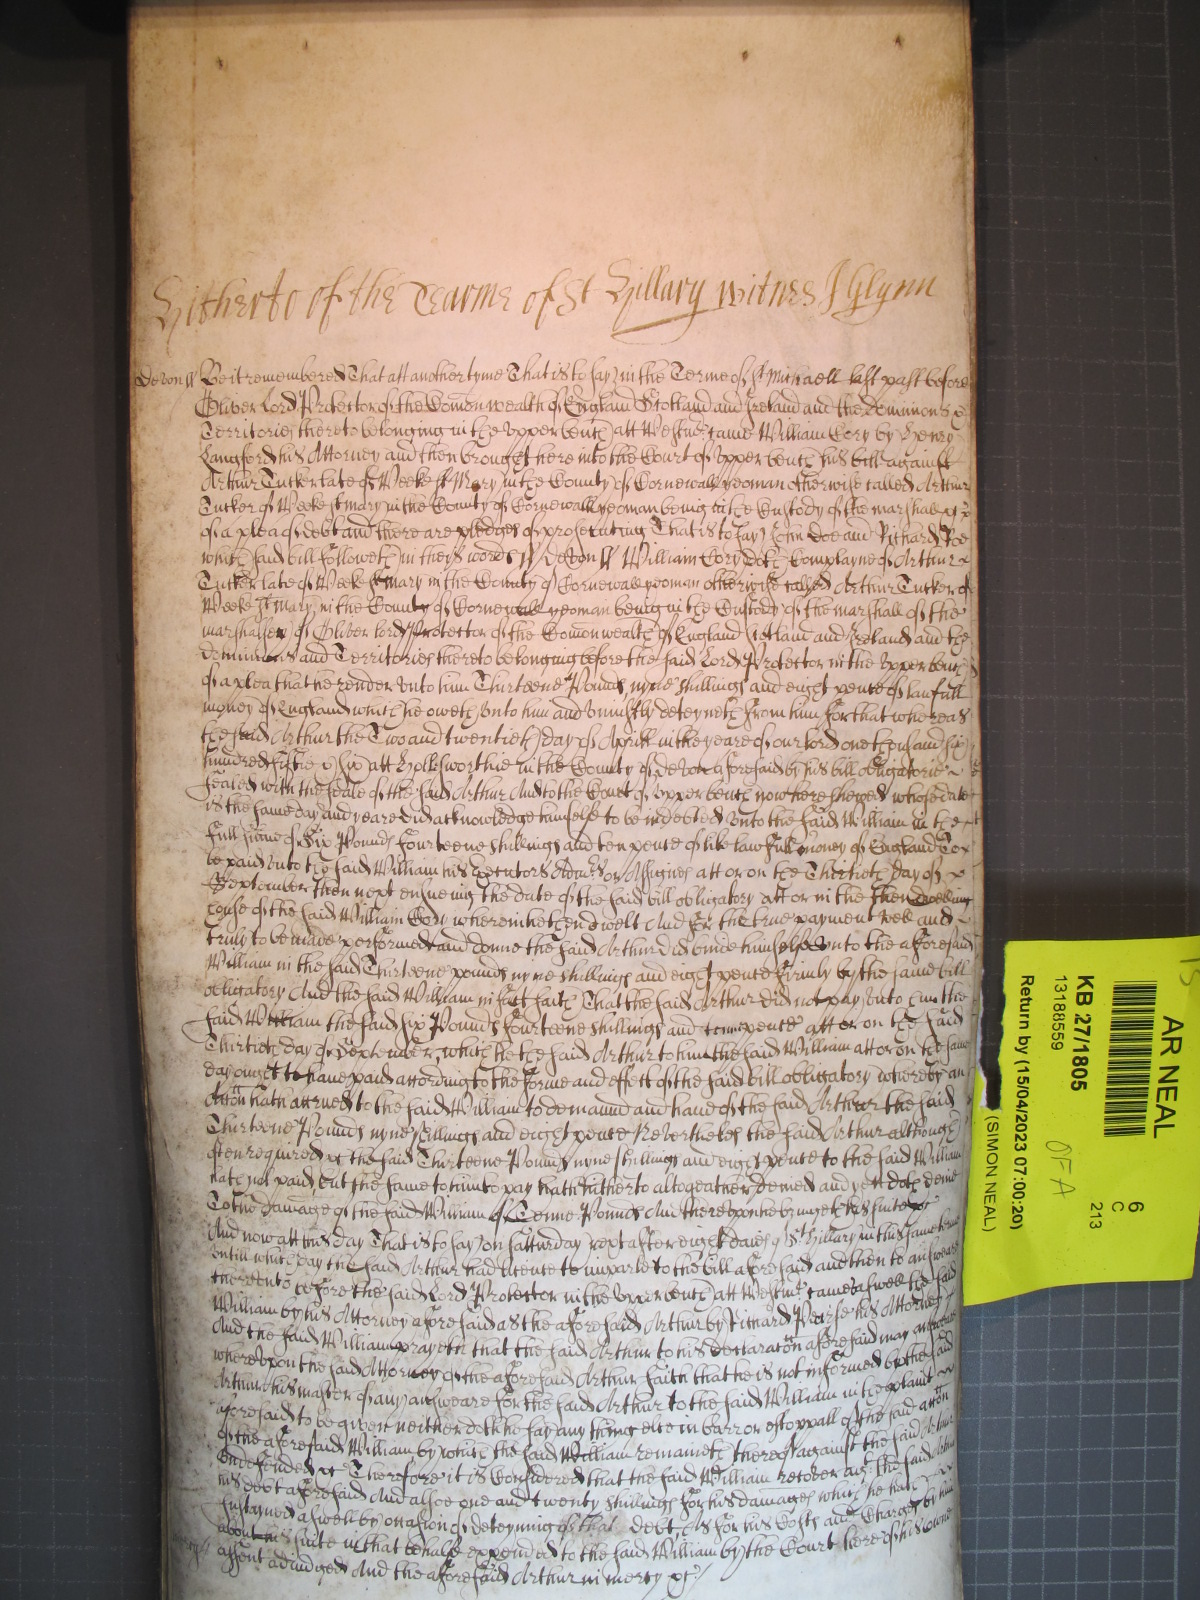 Hitherto of the Tearme of St Hillary witnes J Glynn
Devon ss Be it remembred That att another tyme That is to say in the Terme of St Michaell last past before
Oliver Lord Protector of the Comonwealth of England Scotland and Ireland and the dominions &
Territories thereto belonging in the upper bench att Westmr came William Cory by Henry
Langford his Attorney and then brought here into the Court of upper bench his bill against
Arthur Tucker late of Weeke St Mary in the County of Cornewall yeoman otherwise called Arthur
Tucker of Weeke St mary in the County of Cornewall yeoman being in the Custody of the marshall &c
of a plea of debt and there are pledges of prosecuting That is to say John Doe and Richard Roe
which said bill followeth in theis words ss Devon ss William Cory doth Complayne of Arthur
Tucker late of Weeke St mary in the County of Cornewall yeoman otherwise called Arthur Tucker of
Weeke St Mary in the County of Cornewall yeoman being in the Custody of the marshall of the
marshalsey of Oliver lord Protector of the Comonwealth of England Scotland and Ireland and the
dominions and Territories thereto belonging before the said Lord Protector in the upper bench
of a plea that he render unto him Thirteene Pounds nyne shillings and eight pence of lawfull
money of England which he oweth unto him and uniustly deteyneth from him for that whereas
the said Arthur the Two and twentieth day of Aprill in the yeare of our lord one thousand six
hundred fiftie & six att Holdsworthie in the County of devon aforesaid by his bill obligatorie
sealed with the seale of the said Arthur And to the Court of upper bench now here shewed whose date
is the same day and yeare did acknowledge himselfe to be indebted unto the said William in the
full sume of Six Pounds fourteene shillings and ten pence of like lawfull money of England To
be paid unto the said William his executors Admrs or Assignes att or on the Thirtieth day of
September then next ensueing the date of the said bill obligatory att or in the then dwelling
house of the said William Cory wherein he then dwelt And for the true payment well and
truly to be made performed and donne the said Arthur did binde himselfe unto the aforesaid
William in the said Thirteene pounds nyne shillings and eight pence firmly by the same bill
obligatory And the said William in fact saith That the said Arthur did not pay unto him the
said William the said six Pounds fourteene shillings and tenn pence att or on the said
Thirtieth day of September which he the said Arthur to him the said William att or on the same
day ought to have paid according to the forme and effect of the said bill obligatory whereby an
Accon hath accrued to the said William to demaund and have of the said Arthur the said
Thirteene Pounds nyne shillings and eight pence Neverthelesse the said Arthur although
often required &c the said Thirteene Pounds nyne shillings and eight pence to the said William
hath not paid but the same to him to pay hath hitherto altogeather denied and yett doth denie
To the damage of the said William of Tenne Pounds And thereupon he bringeth his suite &c
And now att this day That is to say on Satturday next after eight daies of St Hillary in this same terme
untill which day the said Arthur had licence to imparle to the bill aforesaid and then to answeare
thereunto before the said Lord Protector in the upper bench att Westmr came aswell the said
William by his Attorney aforesaid as the aforesaid Arthur by Richard Pearse his Attorney
And the said William prayeth that the said Arthur to his declaracon aforesaid may answeare
whereupon the said Attorney of the aforesaid Arthur saith that he is not informed by the said
Arthur his master of any answeare for the said Arthur to the said William in the plaint
aforesaid to be given neither doth he say any thing else in barr or estoppall of the said accon
of the aforesaid William by which the said William remaineth thereof against the said Arthur
undefended &c Therefore it is Considered that the said William recover agt the said Arthur
his debt aforesaid And alsoe one and twenty shillings for his damages which he hath
sustayned aswell by occasion of deteyning of that debt As for his Costs and Charges by him
about his suite in that behalfe expended to the said William by the Court here of his owne
assent adiudged And the aforesaid Arthur in mercy &c
AR NEAL
KB 27/1805
13188559
Return by (15/04/2023 07:00:20)
6
C
213
OFA
(SIMON NEAL)